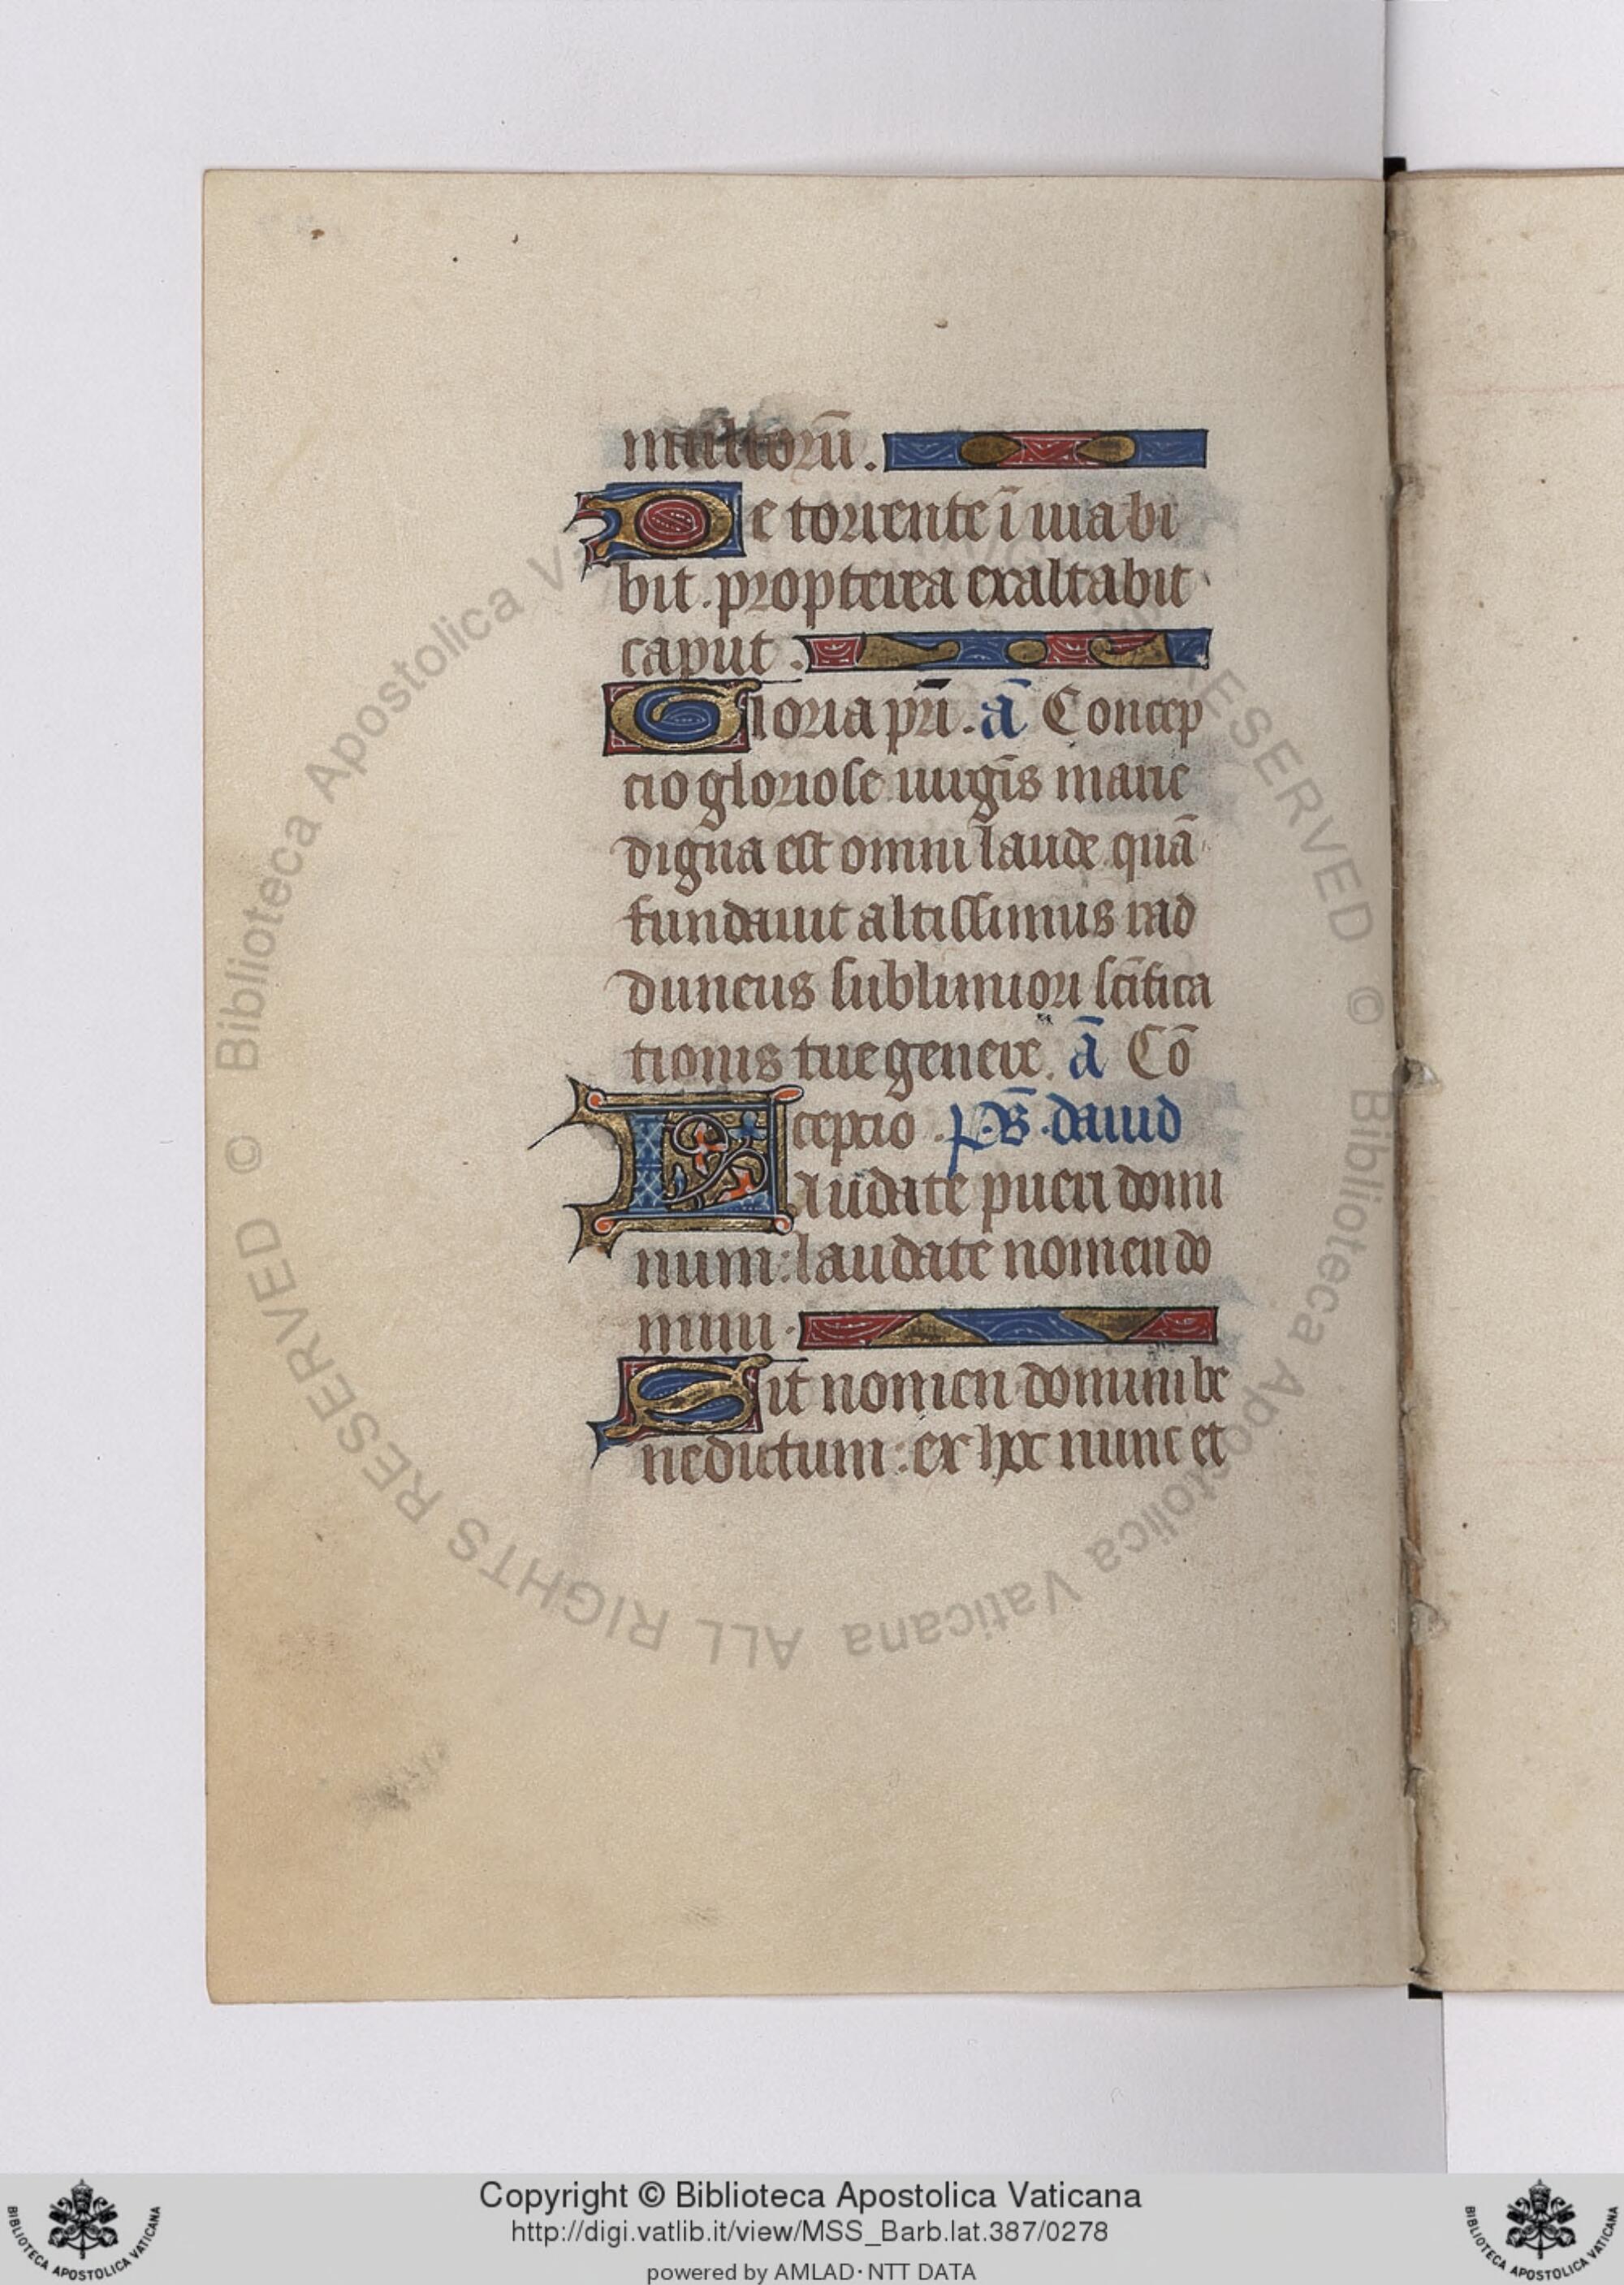 multorū.
De torrente ī via bi
bit. propterea exaltabit
caput.
Gloria pri̅. a̅ Concep
cio gloriose uirgīs marie
digna est omni laude quā
fundauit altissimus
duneus sublimiori scīfica
tionis tue genere. a̅ Cō
cepcio. ps̅. dauid
Laudate pueri domi
num: laudate nomen do
mini.
Sit nomen domini be
nedictum: ex hoc nunc et
© Biblioteca Apostolica Vaticana ALL RIGHTS RESERVED © Biblioteca Apostolica Vaticana ALL RIGHTS RESERVED
Copyright © Biblioteca Apostolica Vaticana
http://digi.vatlib.it/view/MSS_Barb.lat.387/0278
powered by AMLAD·NTT DATA
BIBLIOTECA APOSTOLICA VATICANA
BIBLIOTECA APOSTOLICA VATICANA